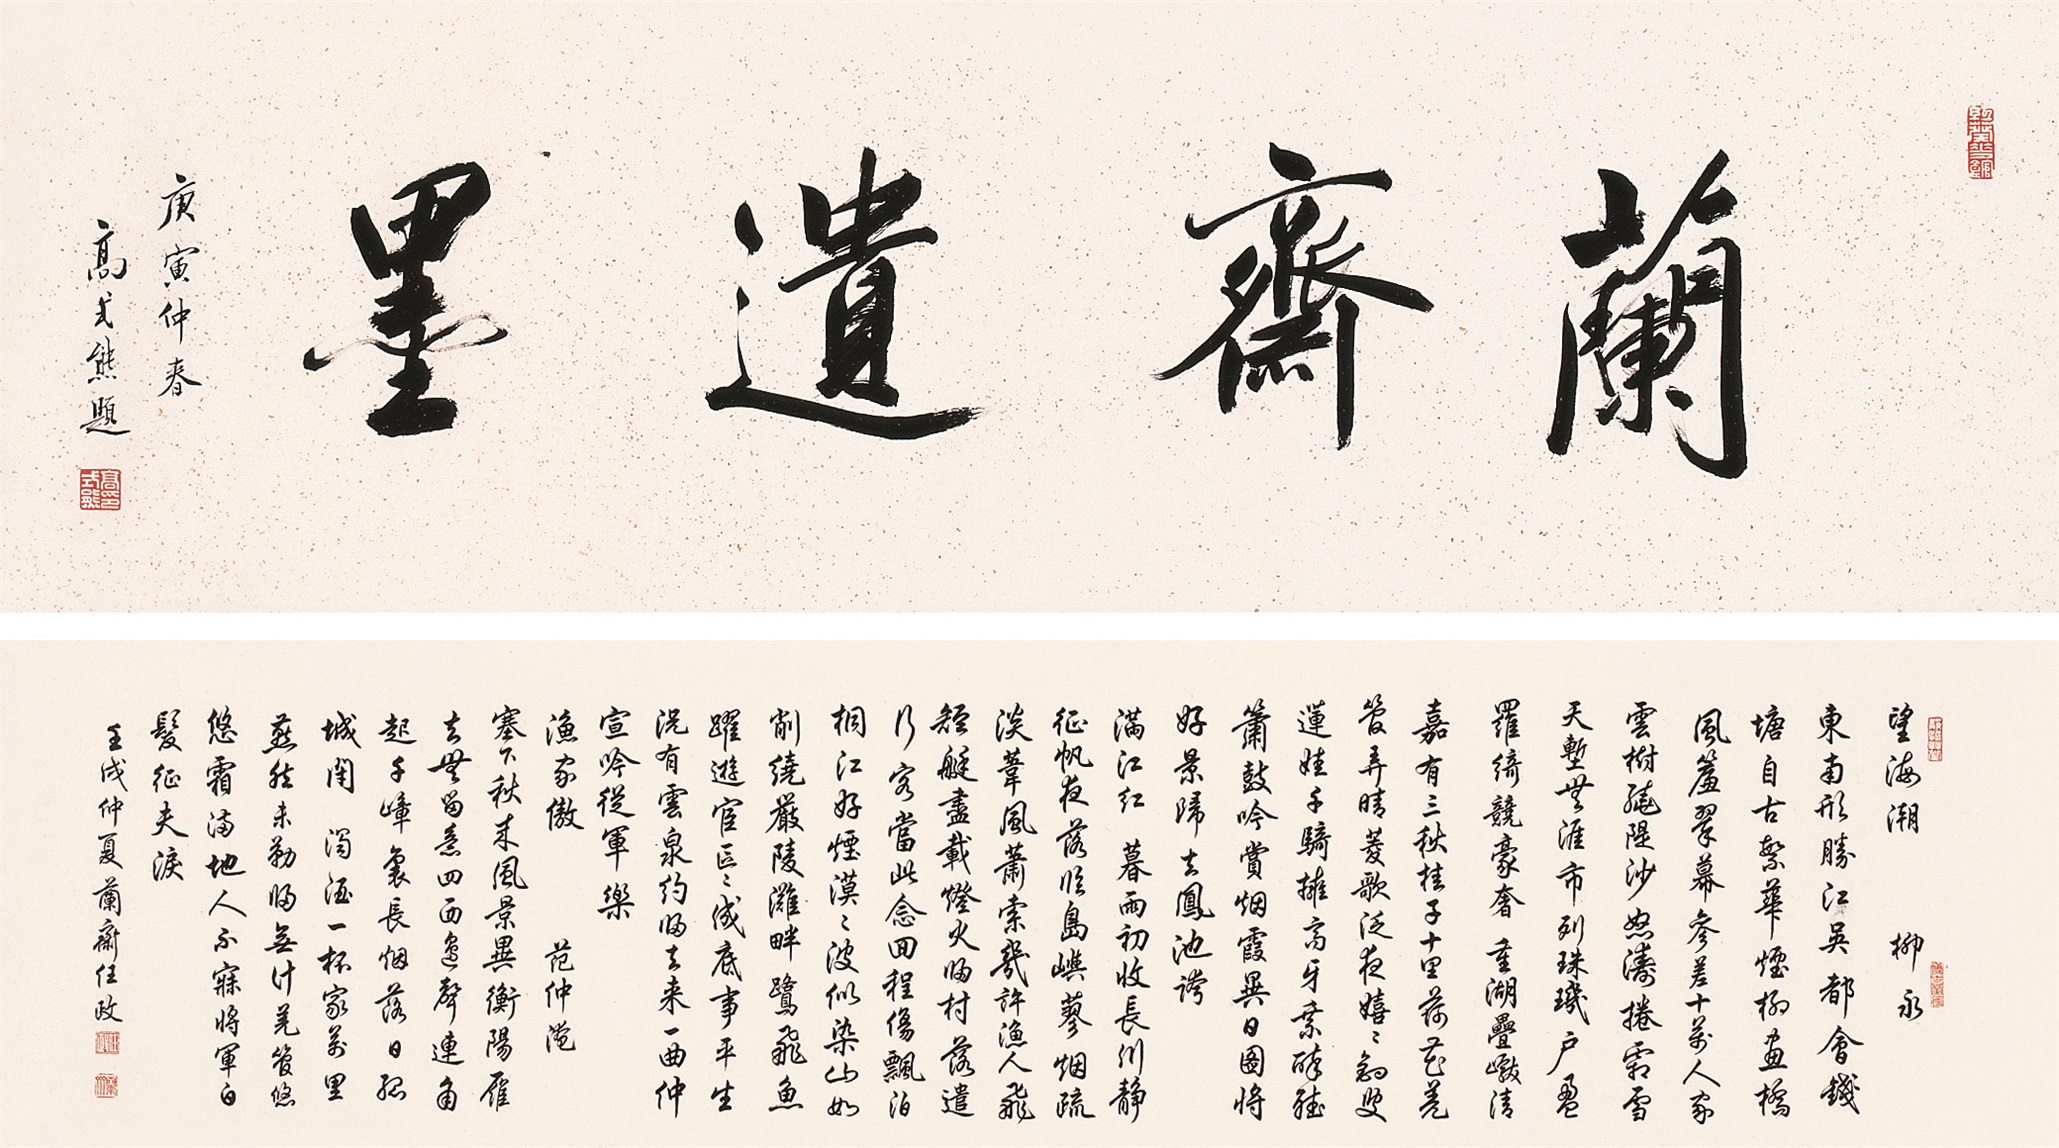 蘭齋遺墨
庚寅仲春
高式熊題
望海潮 柳永
東南形勝江吳都會錢
塘自古繁華煙柳畫橋
風簾翠幕參差十萬人家
雲樹繞隄沙怒濤捲霜雪
天塹無涯市列珠璣户盈
羅綺競豪奢 重湖疊巘清
嘉有三秋桂子十里荷花羌
管弄晴菱歌泛夜嬉〻釣叟
蓮娃千騎擁高牙乘醉聽
簫鼓吟賞烟霞異日圖將
好景歸去鳳池誇
滿江紅 暮雨初收長川靜
征帆夜落臨島嶼蓼烟疏
淡葦風蕭索幾許漁人飛
短艇盡載燈火歸村落遣
行客當此念回程傷飄泊
桐江好煙漠〻波似染山如
削繞嚴陵灘畔鷺飛魚
躍遊宦區〻成底事平生
況有雲泉約歸去來一曲仲
宣吟從軍樂
漁家傲 范仲淹
塞下秋来風景異衡陽雁
去無留意四面邊聲連角
起千嶂裏長烟落日孤
城閉 濁酒一杯家萬里
燕然未勒歸無計羌管悠
悠霜滿地人不寐將軍白
髮征夫淚
壬戌仲夏蘭齋任政
高式熊印